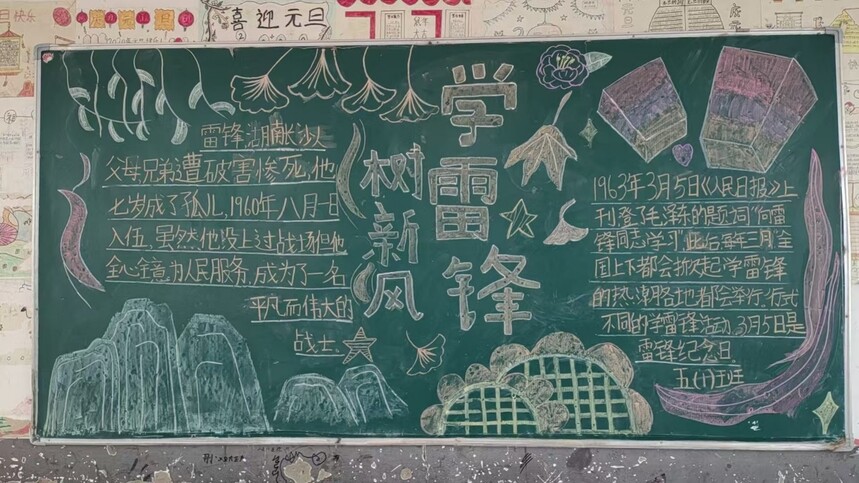 喜迎元旦
学雷锋
树新风
雷锋湖南长沙人
父母兄弟遭破害惨死,他
七岁成了孤儿,1960年八月一日
入伍,虽然他没上过战场但他
全心全意为人民服务,成为了一名
平凡而伟大的
战士.
1963年3月5日《人民日报》上
刊登了毛泽东的题词“向雷
锋同志学习”此后每年三月“全
国上下都会掀起学雷锋
的热潮各地都会举行形式
不同的学雷锋活动3月5日是
雷锋纪念日.
五(1)班